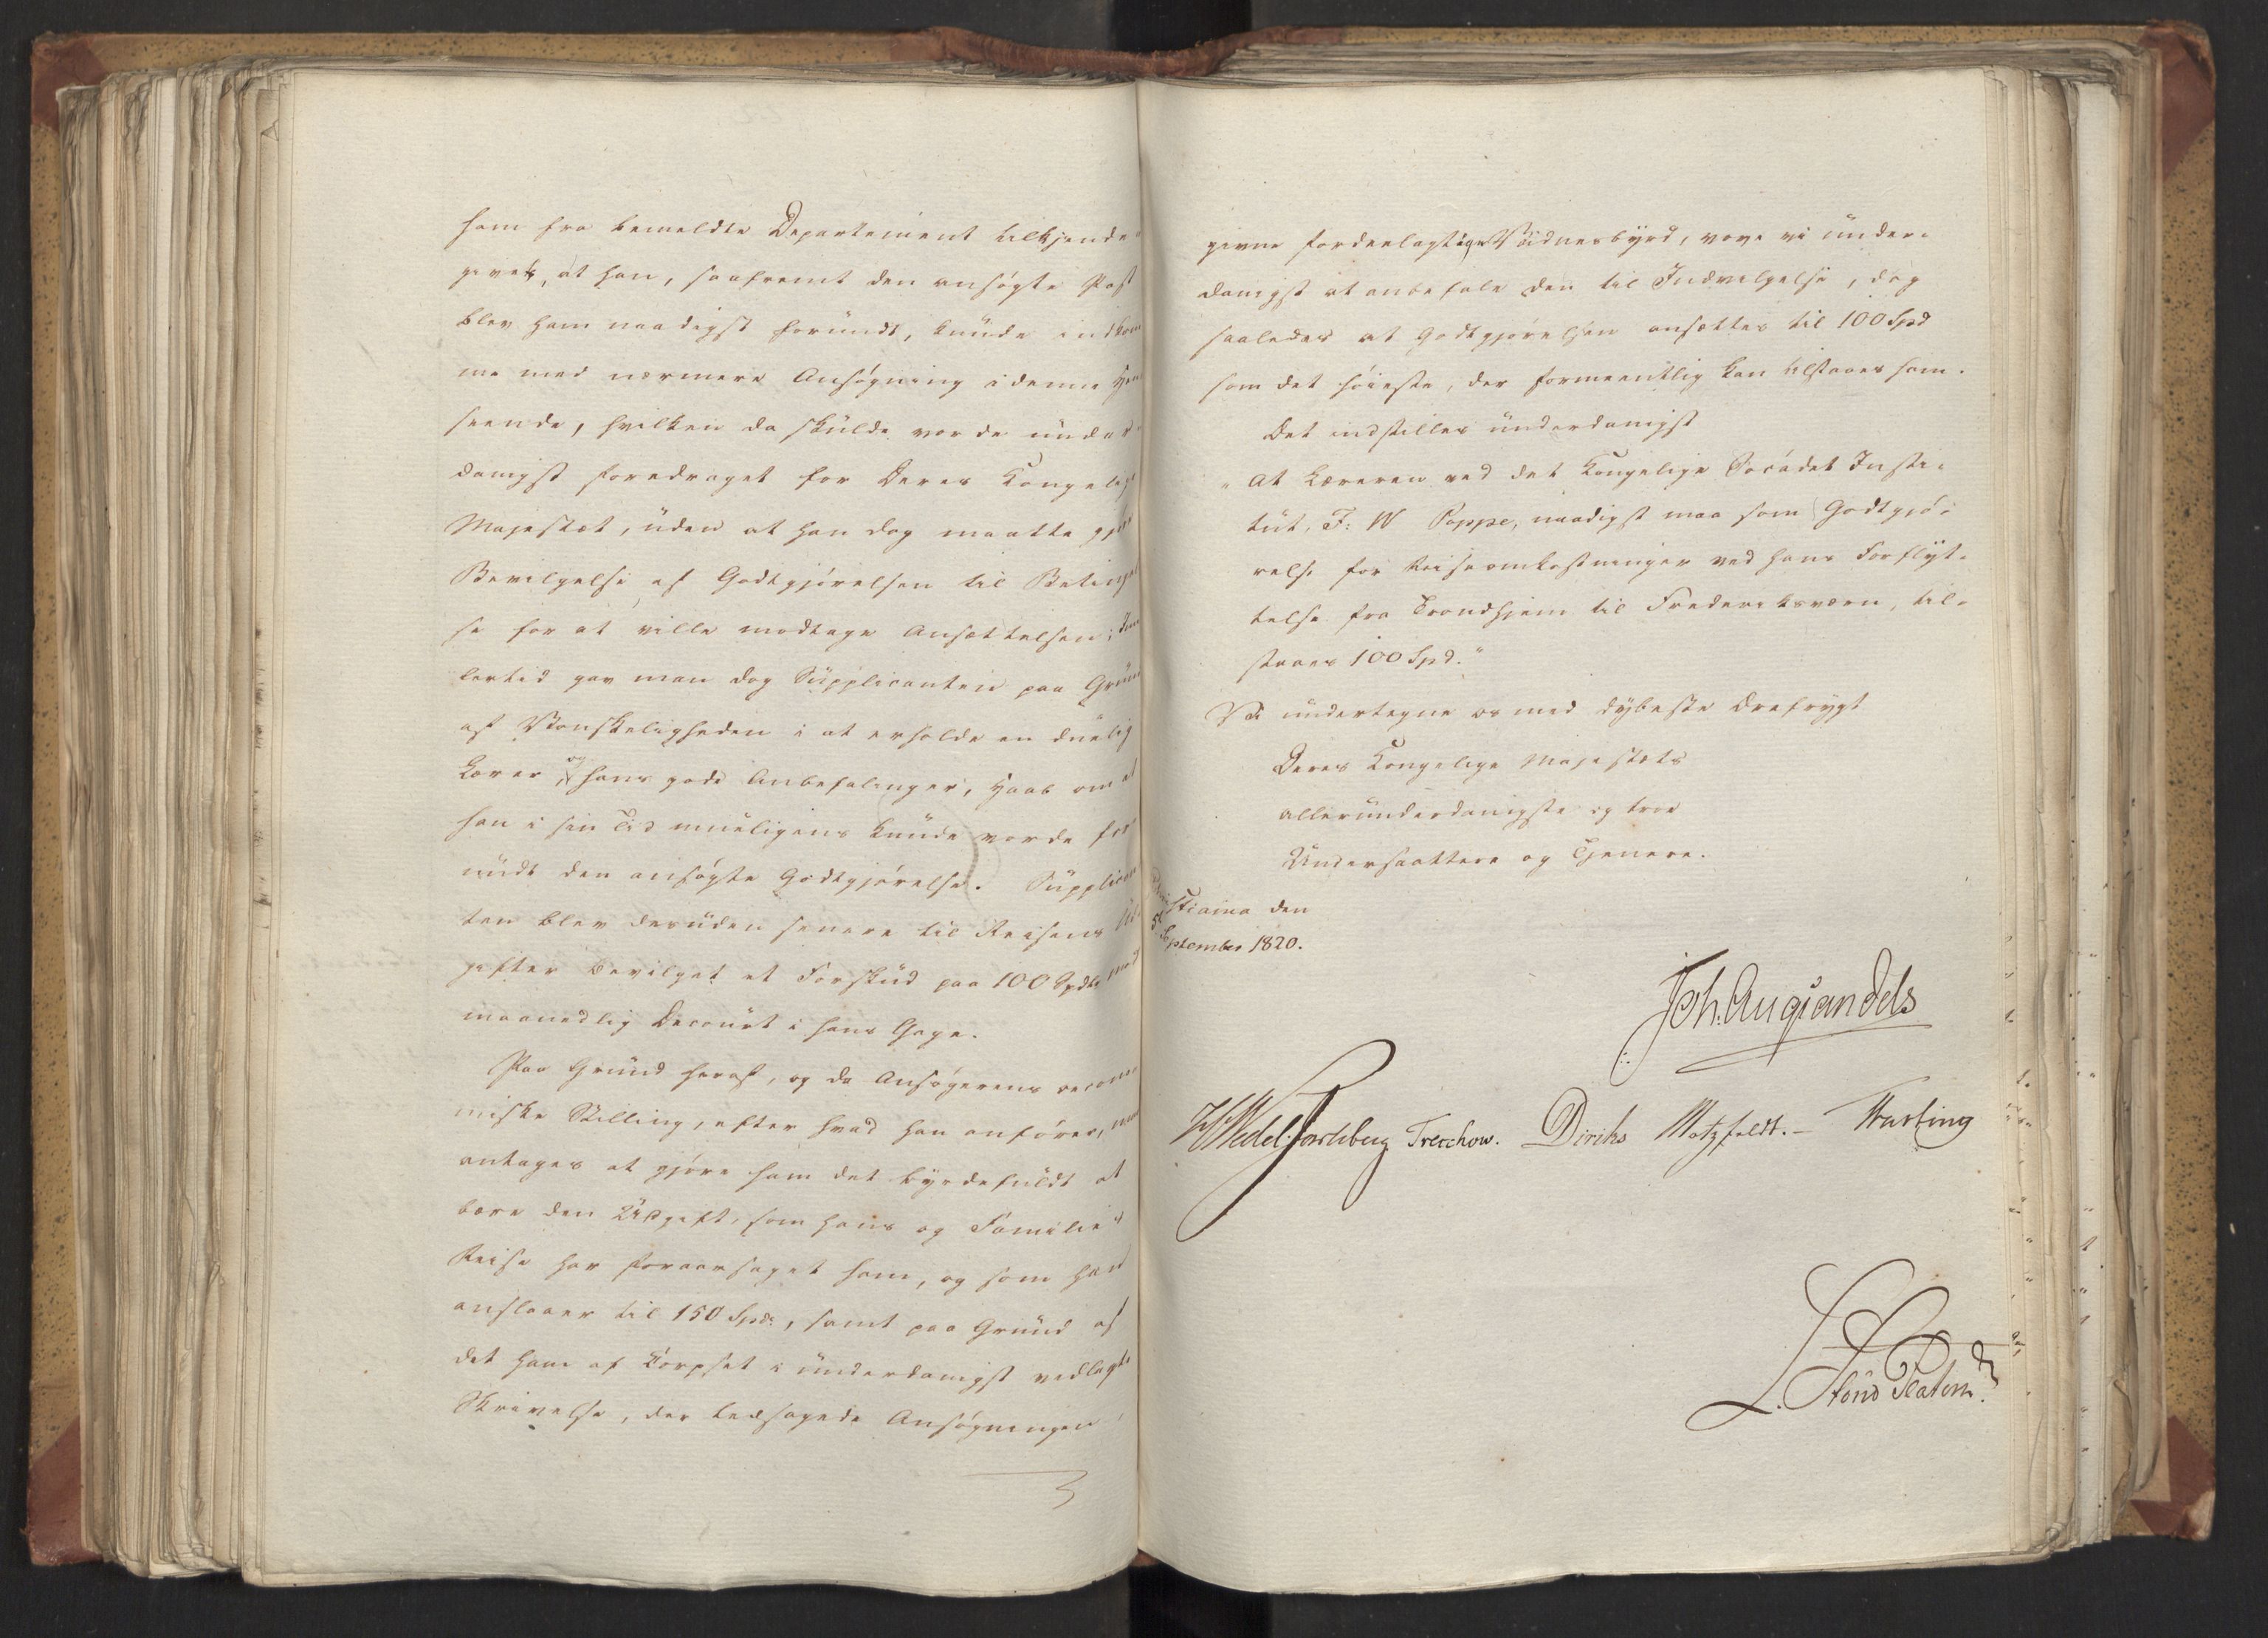 ham fra bemeldte Departement tilkjende-
givet, at han, saafremt den ansøgte Post
blev ham naadigst forundt, kunde indkom
me med nærmere Ansøgning i denne Hen
seende, hvilken da skulde vorde under-
danigst foredraget for Deres Kongelige
Majestæt, uden at han dog maatte gjøre
Bevilgelse af Godtgjørelsen til Betingel
se for at ville modtage Ansættelsen; Im
lertid gav man dog Supplicanten paa Grund
af Vanskeligheden i at erholde en duelig
Lærer og hans gode Anbefalinger, Haab om at
han i sin Tid mueligens kunde vorde for
undt den ansøgte Godtgjørelse. Supplican
ten blev desuden senere til Reisens Ud
gifter bevilget et Forskud paa 100 Spdlr mod
maanedlig Decourt i hans Gage.
Paa Grund heraf, og da Ansøgerens oecono
miske Stilling, efter hvad han anfører, maa
antages at gjøre ham det byrdefuldt at
bære den Udgift, som hans og Familie's
Reise har foraarsaget ham, og som han
anslaaer til 150 Spd:, samt paa Grund af
det ham af Corpset i underdanigst vedlagte
Skrivelse, der ledsagede Ansøgningen,
givne fordeelagtige Vidnesbyrd, vove vi under-
danigst at anbefale den til Indvilgelse, dog
saaledes at Godtgjørelsen ansættes til 100 Spd
som det høieste, der formeentlig kan tilstaaes ham.
Det indstilles underdanigst
"At Læreren ved det Kongelige Søcadet Insti-
tut, F: W Poppe, naadigst maa som Godtgjø-
relse for Reiseomkostninger ved hans Forflyt-
telse fra Trondhjem til Frederiksværn, til-
staaes 100 Spd."
Vi undertegne os med dybeste Ærefrygt
Deres Kongelige Majestæts
allerunderdanigste og troe
Undersaattere og Tjenere.
Christiania den
5t September 1820.
Joh. Aug. Sandels
HWedel Jarlsberg Treschow. Diriks Motzfeldt. – Fasting
L. von Platen